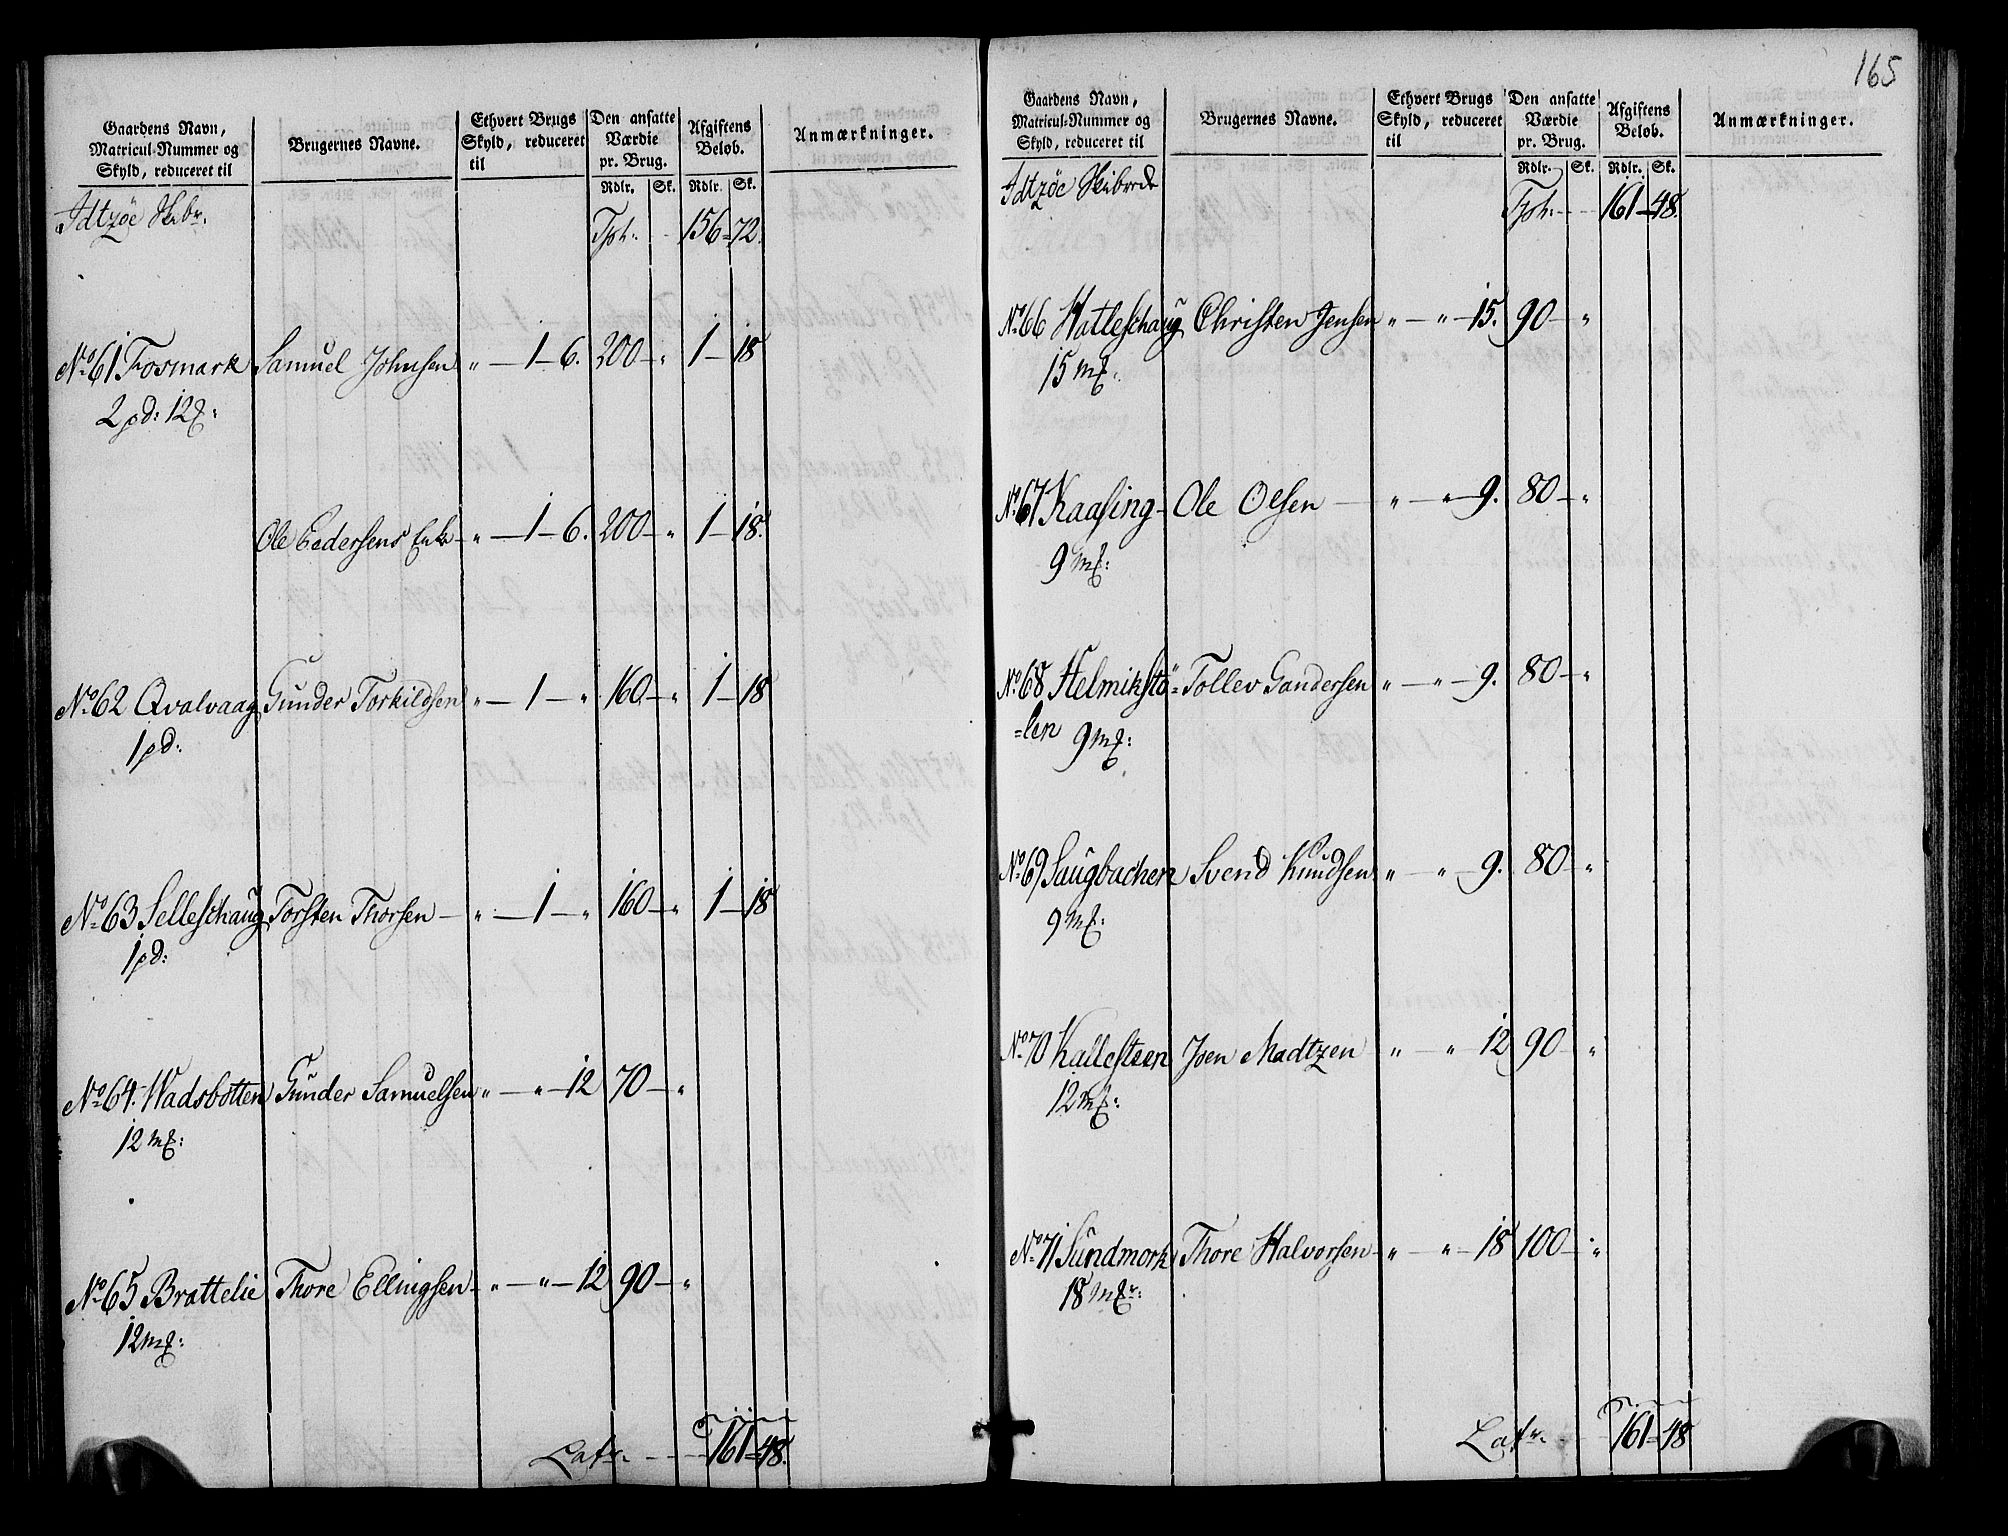 Gaardens Navn, Matricul-Nummer og Skyld, reduceret til | Brugernes Navne. | Ethvert Brugs Skyld, reduceret til | Den ansatte Værdie pr. Brug. | Afgiftens Beløb. | Anmærkninger.
Rdlr. Sk. Rdlr. Sk.
Idtzøe Skibr. Tpt: 156 - 72.
No 61 Fosmark Samuel Johnsen „ - 1 - 6. 200 - „ 1 - 18
2 pd: 12 ℔:
Ole Pedersens Enke - „ - 1 - 6. 200 - „ 1 - 18.
No 62 Qvalvaag Gunder Torkildsen „ - 1 - „ 160 - „ 1 - 18
1 pd:
No 63 Selleschaug Torsten Thorsen - „ - 1 - „ 160 - „ 1 - 18
1 pd:
No 64. Wadsbotten Gunder Samuelsen „ - „ - 12 70 - „
12 m℔:
No 65 Brattelie Thore Ellingsen - „ - „ - 12 90 - „
12 m℔:
Latr. - - - 161 - 48.
165
Gaardens Navn, Matricul-Nummer og Skyld, reduceret til | Brugernes Navne. | Ethvert Brugs Skyld, reduceret til | Den ansatte Værdie pr. Brug. | Afgiftens Beløb. | Anmærkninger.
Rdlr. Sk. Rdlr. Sk.
Idtzøe Skibrede Tpt: - - - 161 - 48.
No 66 Hatleschaug Christen Jensen „ - „ - 15. 90 - „
15 m℔.
No 67 Kaasing - Ole Olsen - „ - „ - 9. 80 - „
9 m℔:
No 68 Helmikstö= Tollev Gandersen „ - „ - 9. 80 - „
=len 9 m℔:
No 69 Saugbachen Svend Knudsen „ - „ - 9. 80 - „
9 m℔:
No 70 Kallesteen Joen Madtzen „ - „ 12 90 - „
12 m℔:
No 71 Sundmork Thore Halvorsen - „ - „ - 18 100 - „
18 m℔r:
Latr. - - - 161 - 48